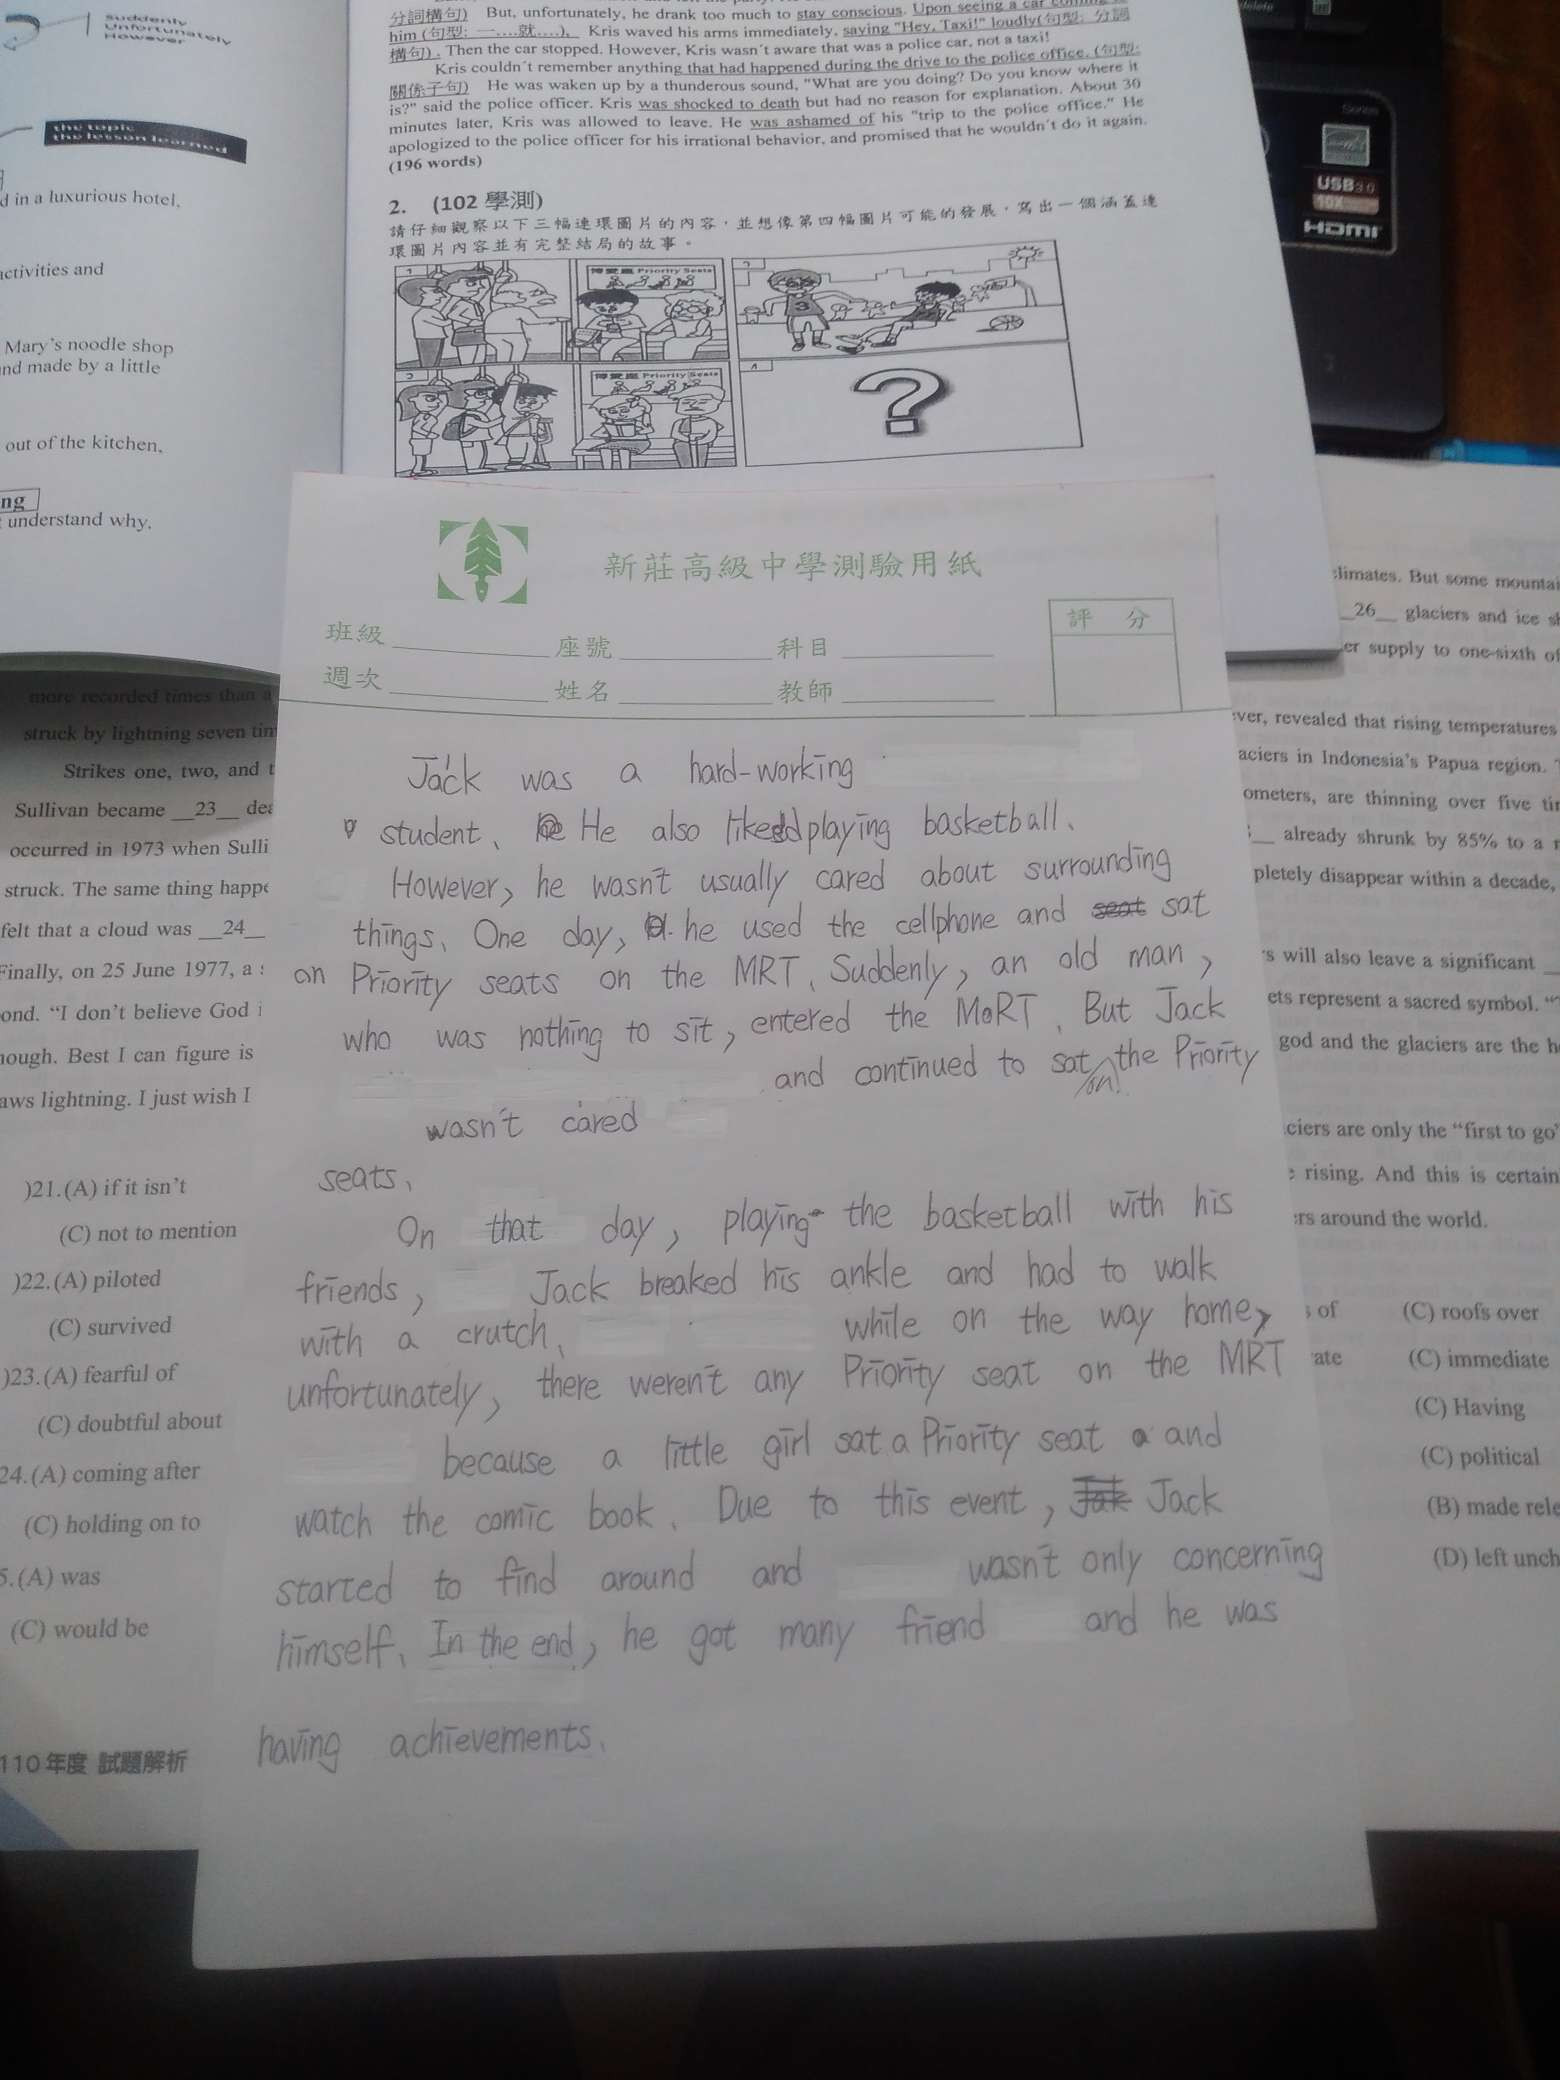 Suddenly
Unfortunately
However
the topic
the lesson learned
d in a luxurious hotel,
activities and
Mary's noodle shop
nd made by a little
out of the kitchen,
ng
understand why,
分詞構句) But, unfortunately, he drank too much to stay conscious. Upon seeing a car coming to
him (句型: 一....就....), Kris waved his arms immediately, saying "Hey, Taxi!" loudly(句型: 分詞
構句). Then the car stopped. However, Kris wasn't aware that was a police car, not a taxi!
Kris couldn't remember anything that had happened during the drive to the police office. (句型:
關係子句) He was waken up by a thunderous sound, "What are you doing? Do you know where it
is?" said the police officer. Kris was shocked to death but had no reason for explanation. About 30
minutes later, Kris was allowed to leave. He was ashamed of his "trip to the police office." He
apologized to the police officer for his irrational behavior, and promised that he wouldn't do it again.
(196 words)
2. (102 學測)
請仔細觀察以下三幅連環圖片的內容，並想像第四幅圖片可能的發展，寫出一個涵蓋連
環圖片內容並有完整結局的故事。
1
博愛座 Priority Seats
2
3
博愛座 Priority Seats
4
?
USB3.0
10X
HDMI
新莊高級中學測驗用紙
班級 座號 科目
週次 姓名 教師
評 分
Jack was a hard-working
student. He also liked playing basketball.
However, he wasn't usually cared about surrounding
things. One day, he used the cellphone and seat sat
on Priority seats on the MRT. Suddenly, an old man,
who was nothing to sit, entered the MRT. But Jack
and continued to sat on the Priority
wasn't cared
seats.
On that day, playing the basketball with his
friends, Jack breaked his ankle and had to walk
with a crutch. while on the way home,
unfortunately, there weren't any Priority seat on the MRT
because a little girl sat a Priority seat and
watch the comic book. Due to this event, Jack
started to find around and wasn't only concerning
himself. In the end, he got many friend and he was
having achievements.
more recorded times than a
struck by lightning seven tim
Strikes one, two, and t
Sullivan became __23__ dea
occurred in 1973 when Sulli
struck. The same thing happe
felt that a cloud was __24__
Finally, on 25 June 1977, a s
ond. "I don't believe God i
nough. Best I can figure is
aws lightning. I just wish I
)21.(A) if it isn't
(C) not to mention
)22.(A) piloted
(C) survived
)23.(A) fearful of
(C) doubtful about
24.(A) coming after
(C) holding on to
5.(A) was
(C) would be
110 年度 試題解析
climates. But some mountai
__26__ glaciers and ice sh
er supply to one-sixth of
ver, revealed that rising temperatures
aciers in Indonesia's Papua region.
ometers, are thinning over five tim
already shrunk by 85% to a
pletely disappear within a decade,
s will also leave a significant
ets represent a sacred symbol.
god and the glaciers are the h
ciers are only the "first to go"
rising. And this is certain
rs around the world.
s of (C) roofs over
rate (C) immediate
(C) Having
(C) political
(B) made rele
(D) left unch